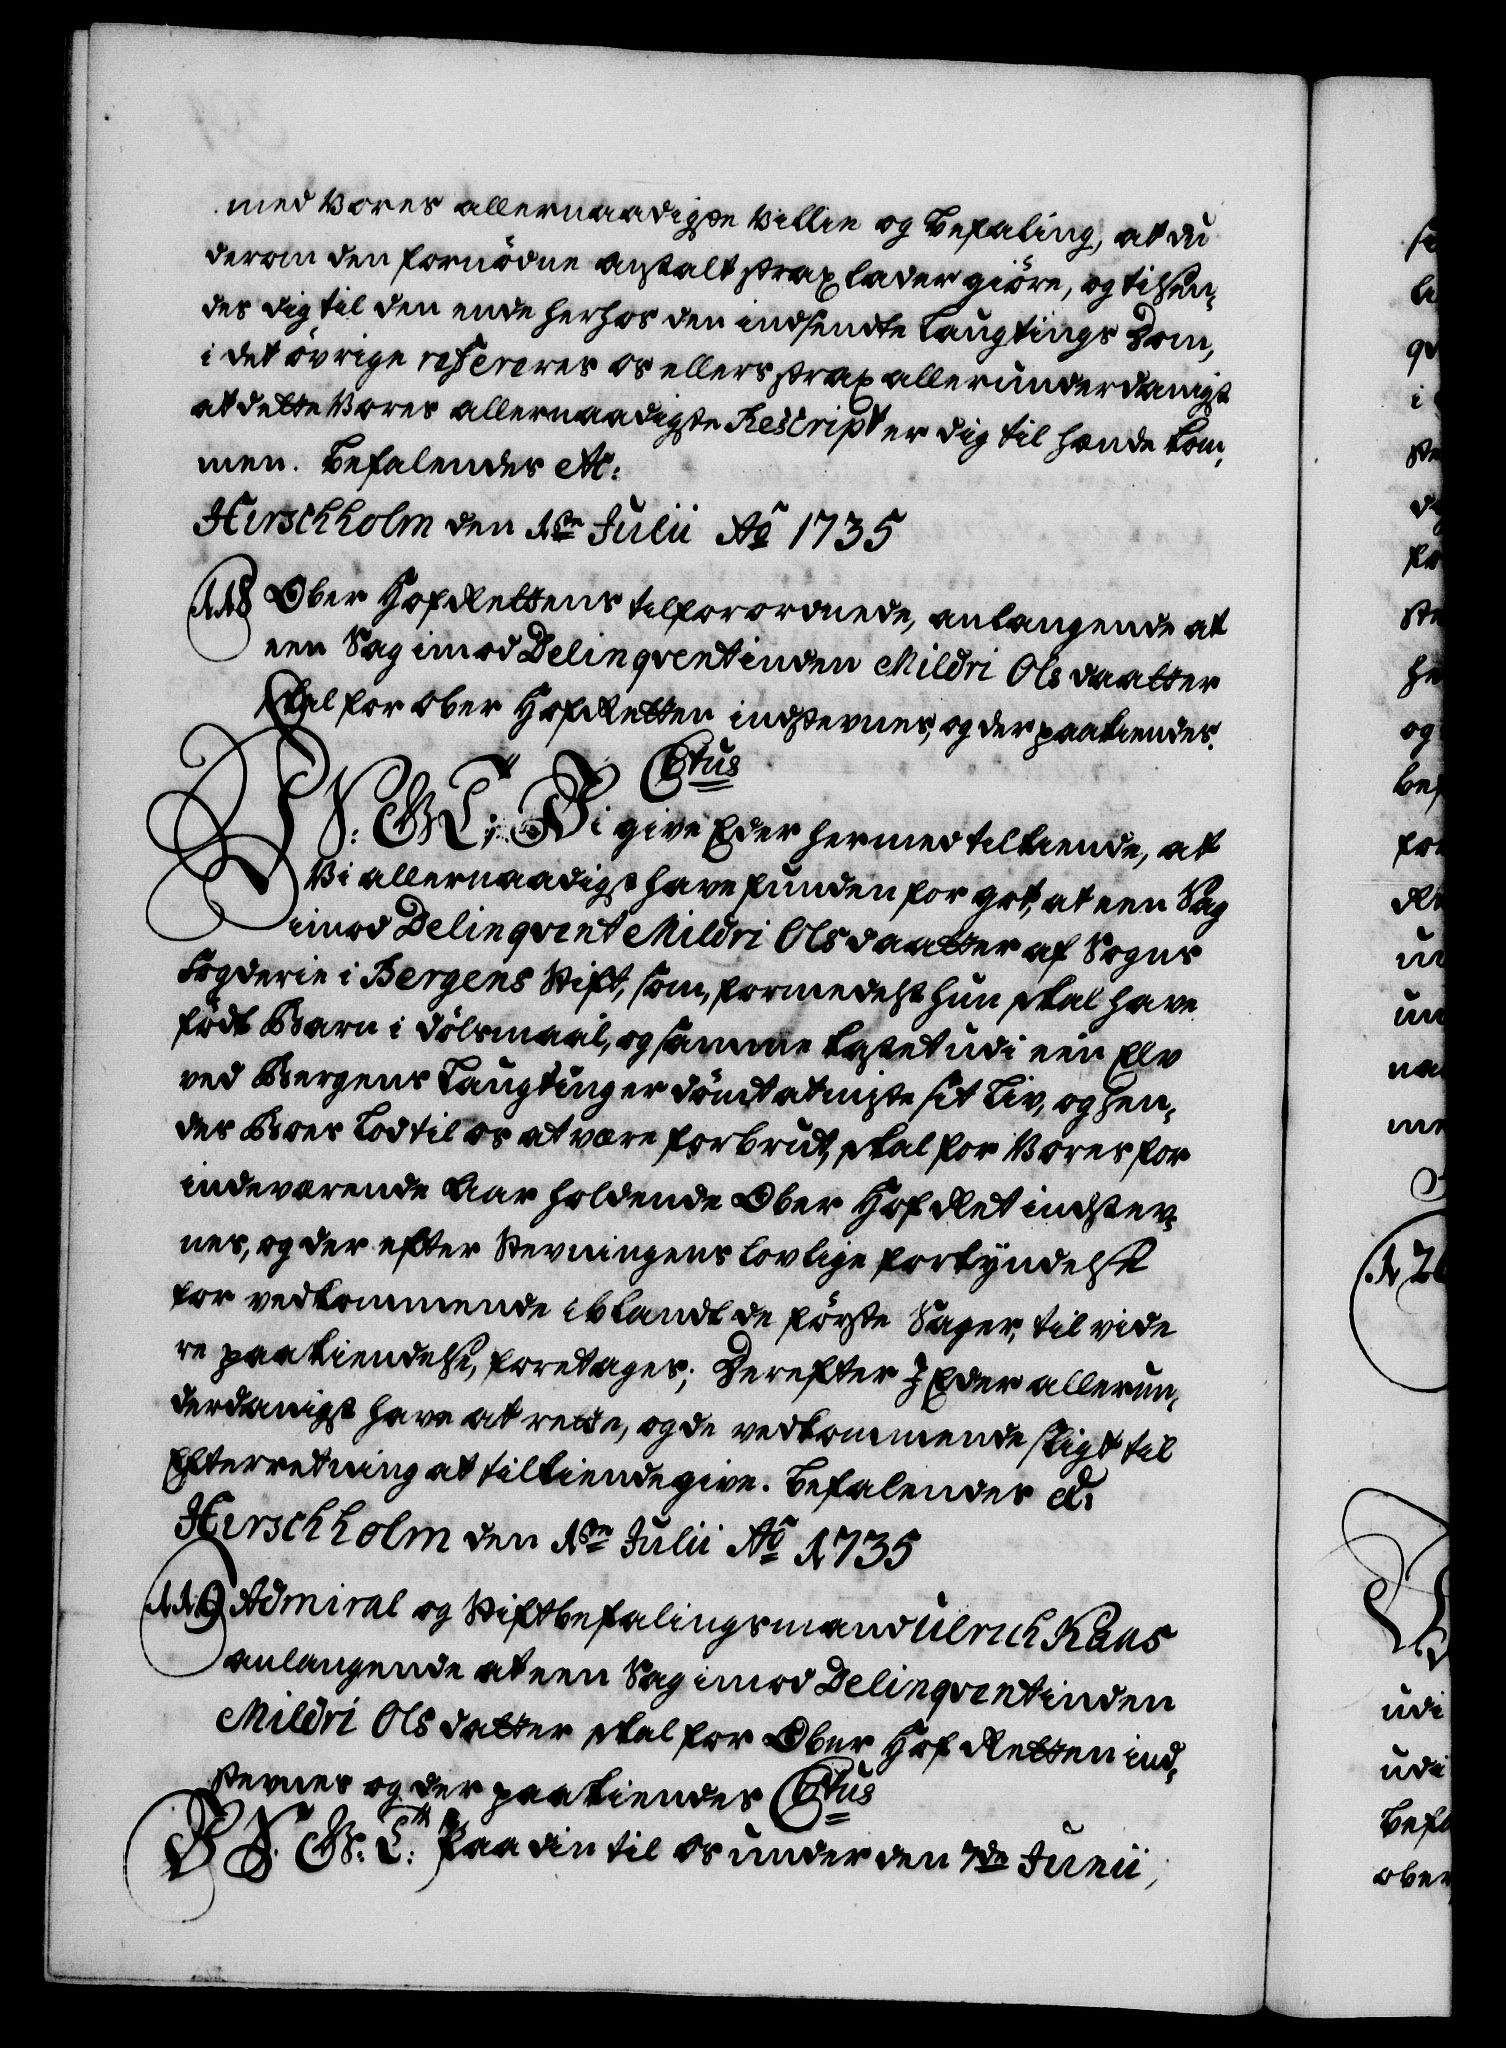 med Vores allernaadigste Villie og Befaling, at du
derom den fornødne Anstalt strax lader giöre, og tilsen,
des dig til den ende herhos den indsendte Laugtings Dom,
i det övrige refereres os ellers strax allerunderdanigst
at dette Vores allernaadigste Rescript er dig til hænde kom,
men. Befalendes etc:
Hirschholm den 1ste Julii Ao 1735
118 Ober HofRettens tilforordnede, anlangende at
een Sag imod Delinqventinden Mildri Olsdaatter
skal for Ober HofRetten indstevnes, og der paakiendes.
Ctus
V. S: G: T: Vi give Eder hermed tilkiende, at
Vi allernaadigst have funden for got, at een Sag
imod Delinqvent Mildri Olsdaatter af Sogns
Fogderie i Bergens Stift, som, formedelst hun skal have
födt Barn i Dölsmaal, og samme kastet udi een Elv
ved Bergens Laugting er dömt at miste sit Liv, og hen,
des Boes Lod til os at være forbrut, skal for Vores for
indeværende Aar holdende Ober HofRet indstev,
nes, og der efter Stevningens lovlige forkyndelse
for vedkommende iblandt de förste Sager, til vide
re paakiendelse, foretages; Derefter I Eder allerun,
derdanigst have at rette, og de vedkommende sligt til
Efterretning at tilkiendegive. Befalendes etc:
Hirschholm den 1ste Julii Ao 1735
119 Admiral og Stiftbefalingsmand Ulrich Kaas
anlangende at een Sag imod Delinqventinden
Mildri Olsdatter skal for Ober HofRetten ind,
stevnes og der paakiendes Ctus
V. S. G: T: Paa din til os under den 7de Junii,